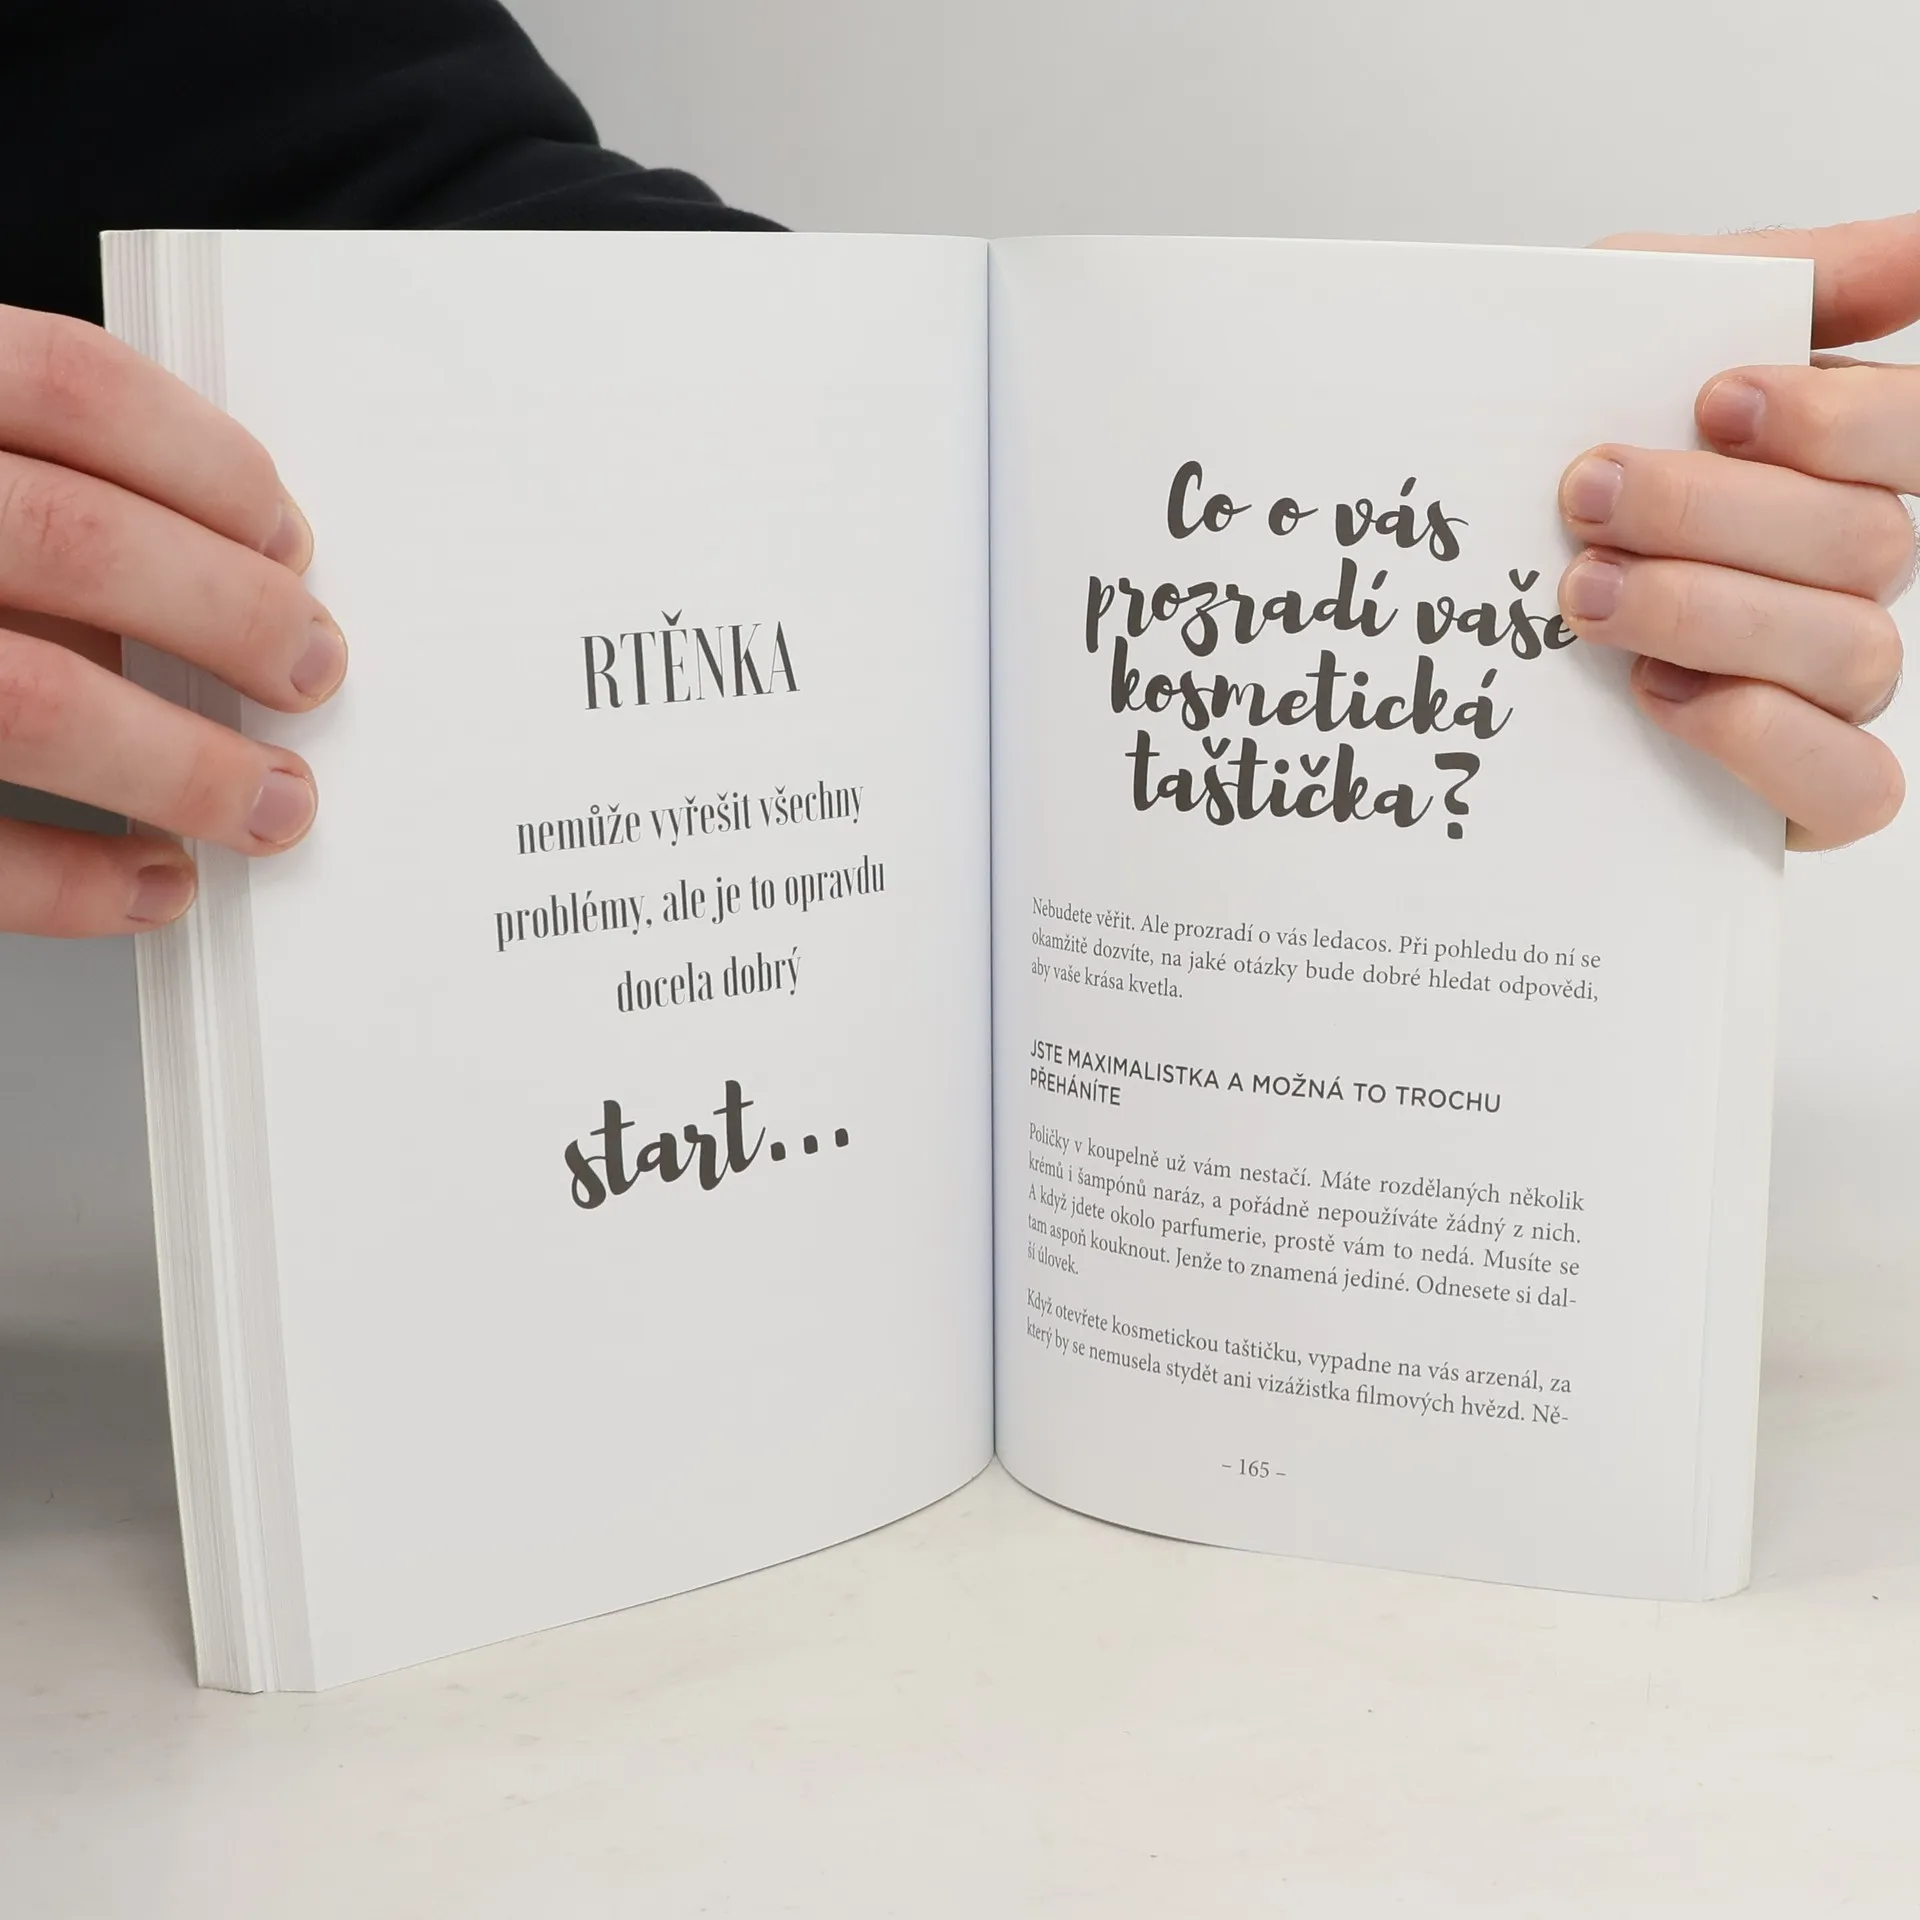 RTĚNKA
nemůže vyřešit všechny
problémy, ale je to opravdu
docela dobrý
start...
Co o vás
prozradí vaše
kosmetická
taštička?
Nebudete věřit. Ale prozradí o vás ledacos. Při pohledu do ní se
okamžitě dozvíte, na jaké otázky bude dobré hledat odpovědi,
aby vaše krása kvetla.
JSTE MAXIMALISTKA A MOŽNÁ TO TROCHU
PŘEHÁNÍTE
Poličky v koupelně už vám nestačí. Máte rozdělaných několik
krémů i šampónů naráz, a pořádně nepoužíváte žádný z nich.
A když jdete okolo parfumerie, prostě vám to nedá. Musíte se
tam aspoň kouknout. Jenže to znamená jediné. Odnesete si dal-
ší úlovek.
Když otevřete kosmetickou taštičku, vypadne na vás arzenál, za
který by se nemusela stydět ani vizážistka filmových hvězd. Ně-
– 165 –